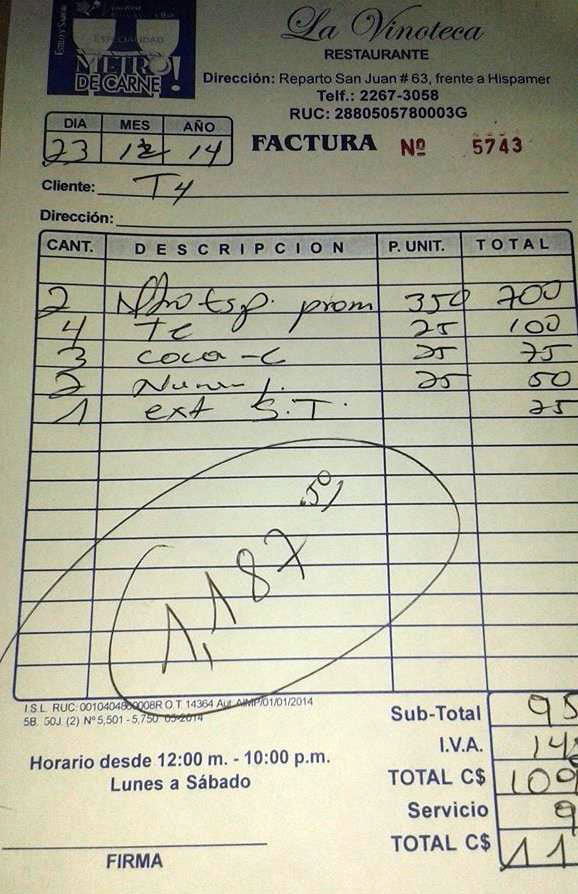 ESPECIALIDAD
METRO
DE CARNE!
La Vinoteca
RESTAURANTE
Dirección: Reparto San Juan # 63, frente a Hispamer
Telf.: 2267-3058
RUC: 2880505780003G
DIA MES AÑO
23 12 14
FACTURA Nº 5743
Cliente: T4
Dirección:
CANT. DESCRIPCION P. UNIT. TOTAL
2 prom 350 700
4 Te 25 100
3 coca-c 25 75
2 25 50
1 ext S.T. 25
1,187.50
I.S.L. RUC: O.T. 14364 Aut. AIMP/01/01/2014
5B. 50J. (2) Nº 5,501 - 5,750 05-2014
Sub-Total 95
I.V.A. 14
Horario desde 12:00 m. - 10:00 p.m.
TOTAL C$ 109
Lunes a Sábado
Servicio 9
TOTAL C$ 11
FIRMA